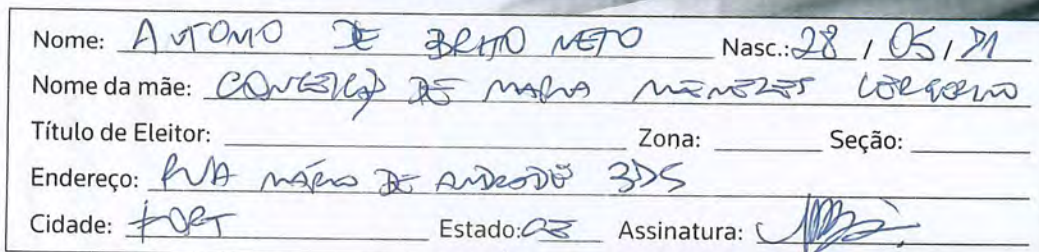 Nome: ANTONIO DE BRITO NETO Nasc.: 28 / 05 / 71
Nome da mãe: CONCEIÇÃO DE MARIA MENEZES
Título de Eleitor: Zona: Seção:
Endereço: RUA MÁRIO DE ANDRADE
Cidade: FORT Estado: CE Assinatura: